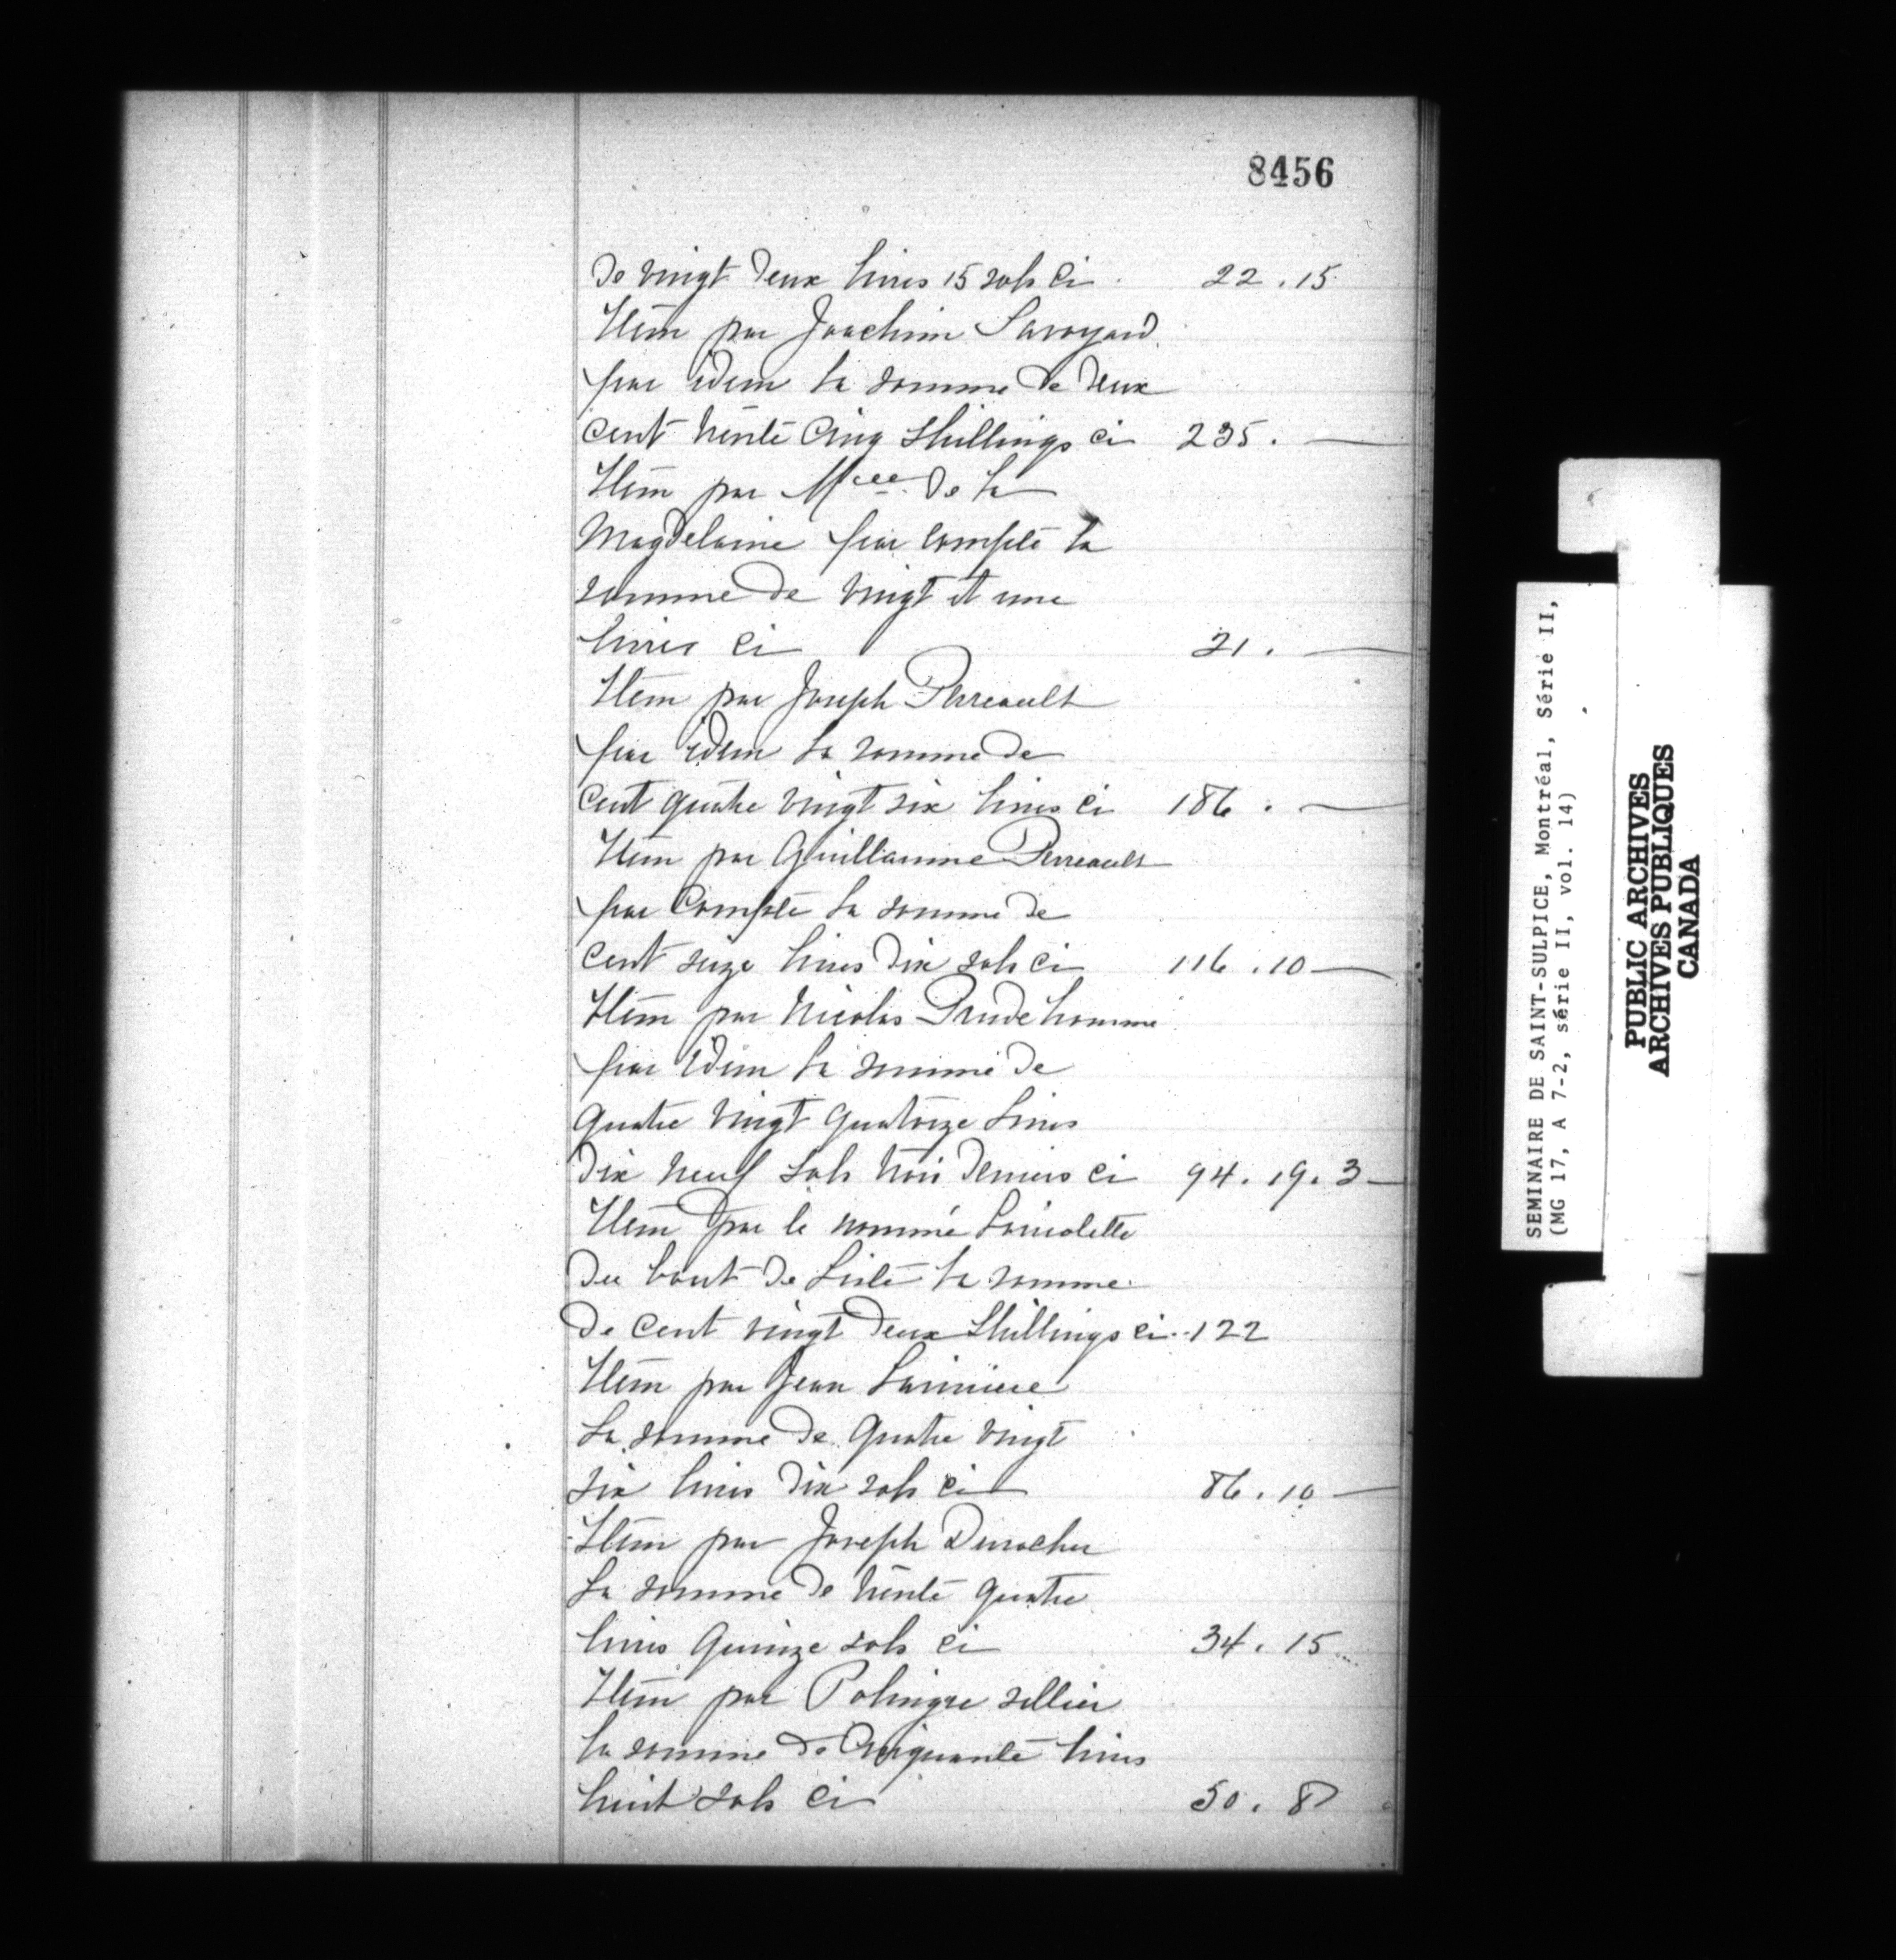 8456
de vingt deux livres 15 sols ci 22.15
Item par Joachim Savoyard
par idem la somme de deux
cent trente cinq shillings ci 235.—
Item par Mcee de la
Magdelaine par compte la
somme de vingt et une
livres ci 21.—
Item par Joseph Perreault
par idem la somme de
cent quatre vingt six livres ci 186.—
Item par Guillaume Perreault
par Compte la somme de
cent seize livres dix sols ci 116.10—
Item par Nicolas Prudehomme
par idem la somme de
quatre vingt quatorze livres
dix neuf sols trois deniers ci 94.19.3—
Item par le nommé
du bout de L'isle la somme
de cent vingt deux Shillings ci 122
Item par Jean
La somme de quatre vingt
six livres dix sols ci 86.10—
Item par Joseph Durocher
La somme de trente quatre
livres quinze sols ci 34.15
Item par Polingre sellier
la somme de Cinquante livres
huit sols ci 50.8
SEMINAIRE DE SAINT-SULPICE, Montréal, Série II,
(MG 17, A 7-2, série II, vol. 14)
PUBLIC ARCHIVES
ARCHIVES PUBLIQUES
CANADA